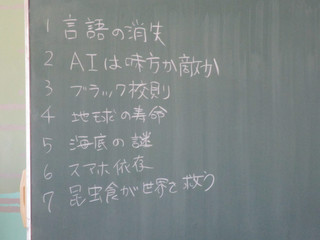 1 言語の消失
2 AIは味方か敵か
3 ブラック校則
4 地球の寿命
5 海底の謎
6 スマホ依存
7 昆虫食が世界を救う